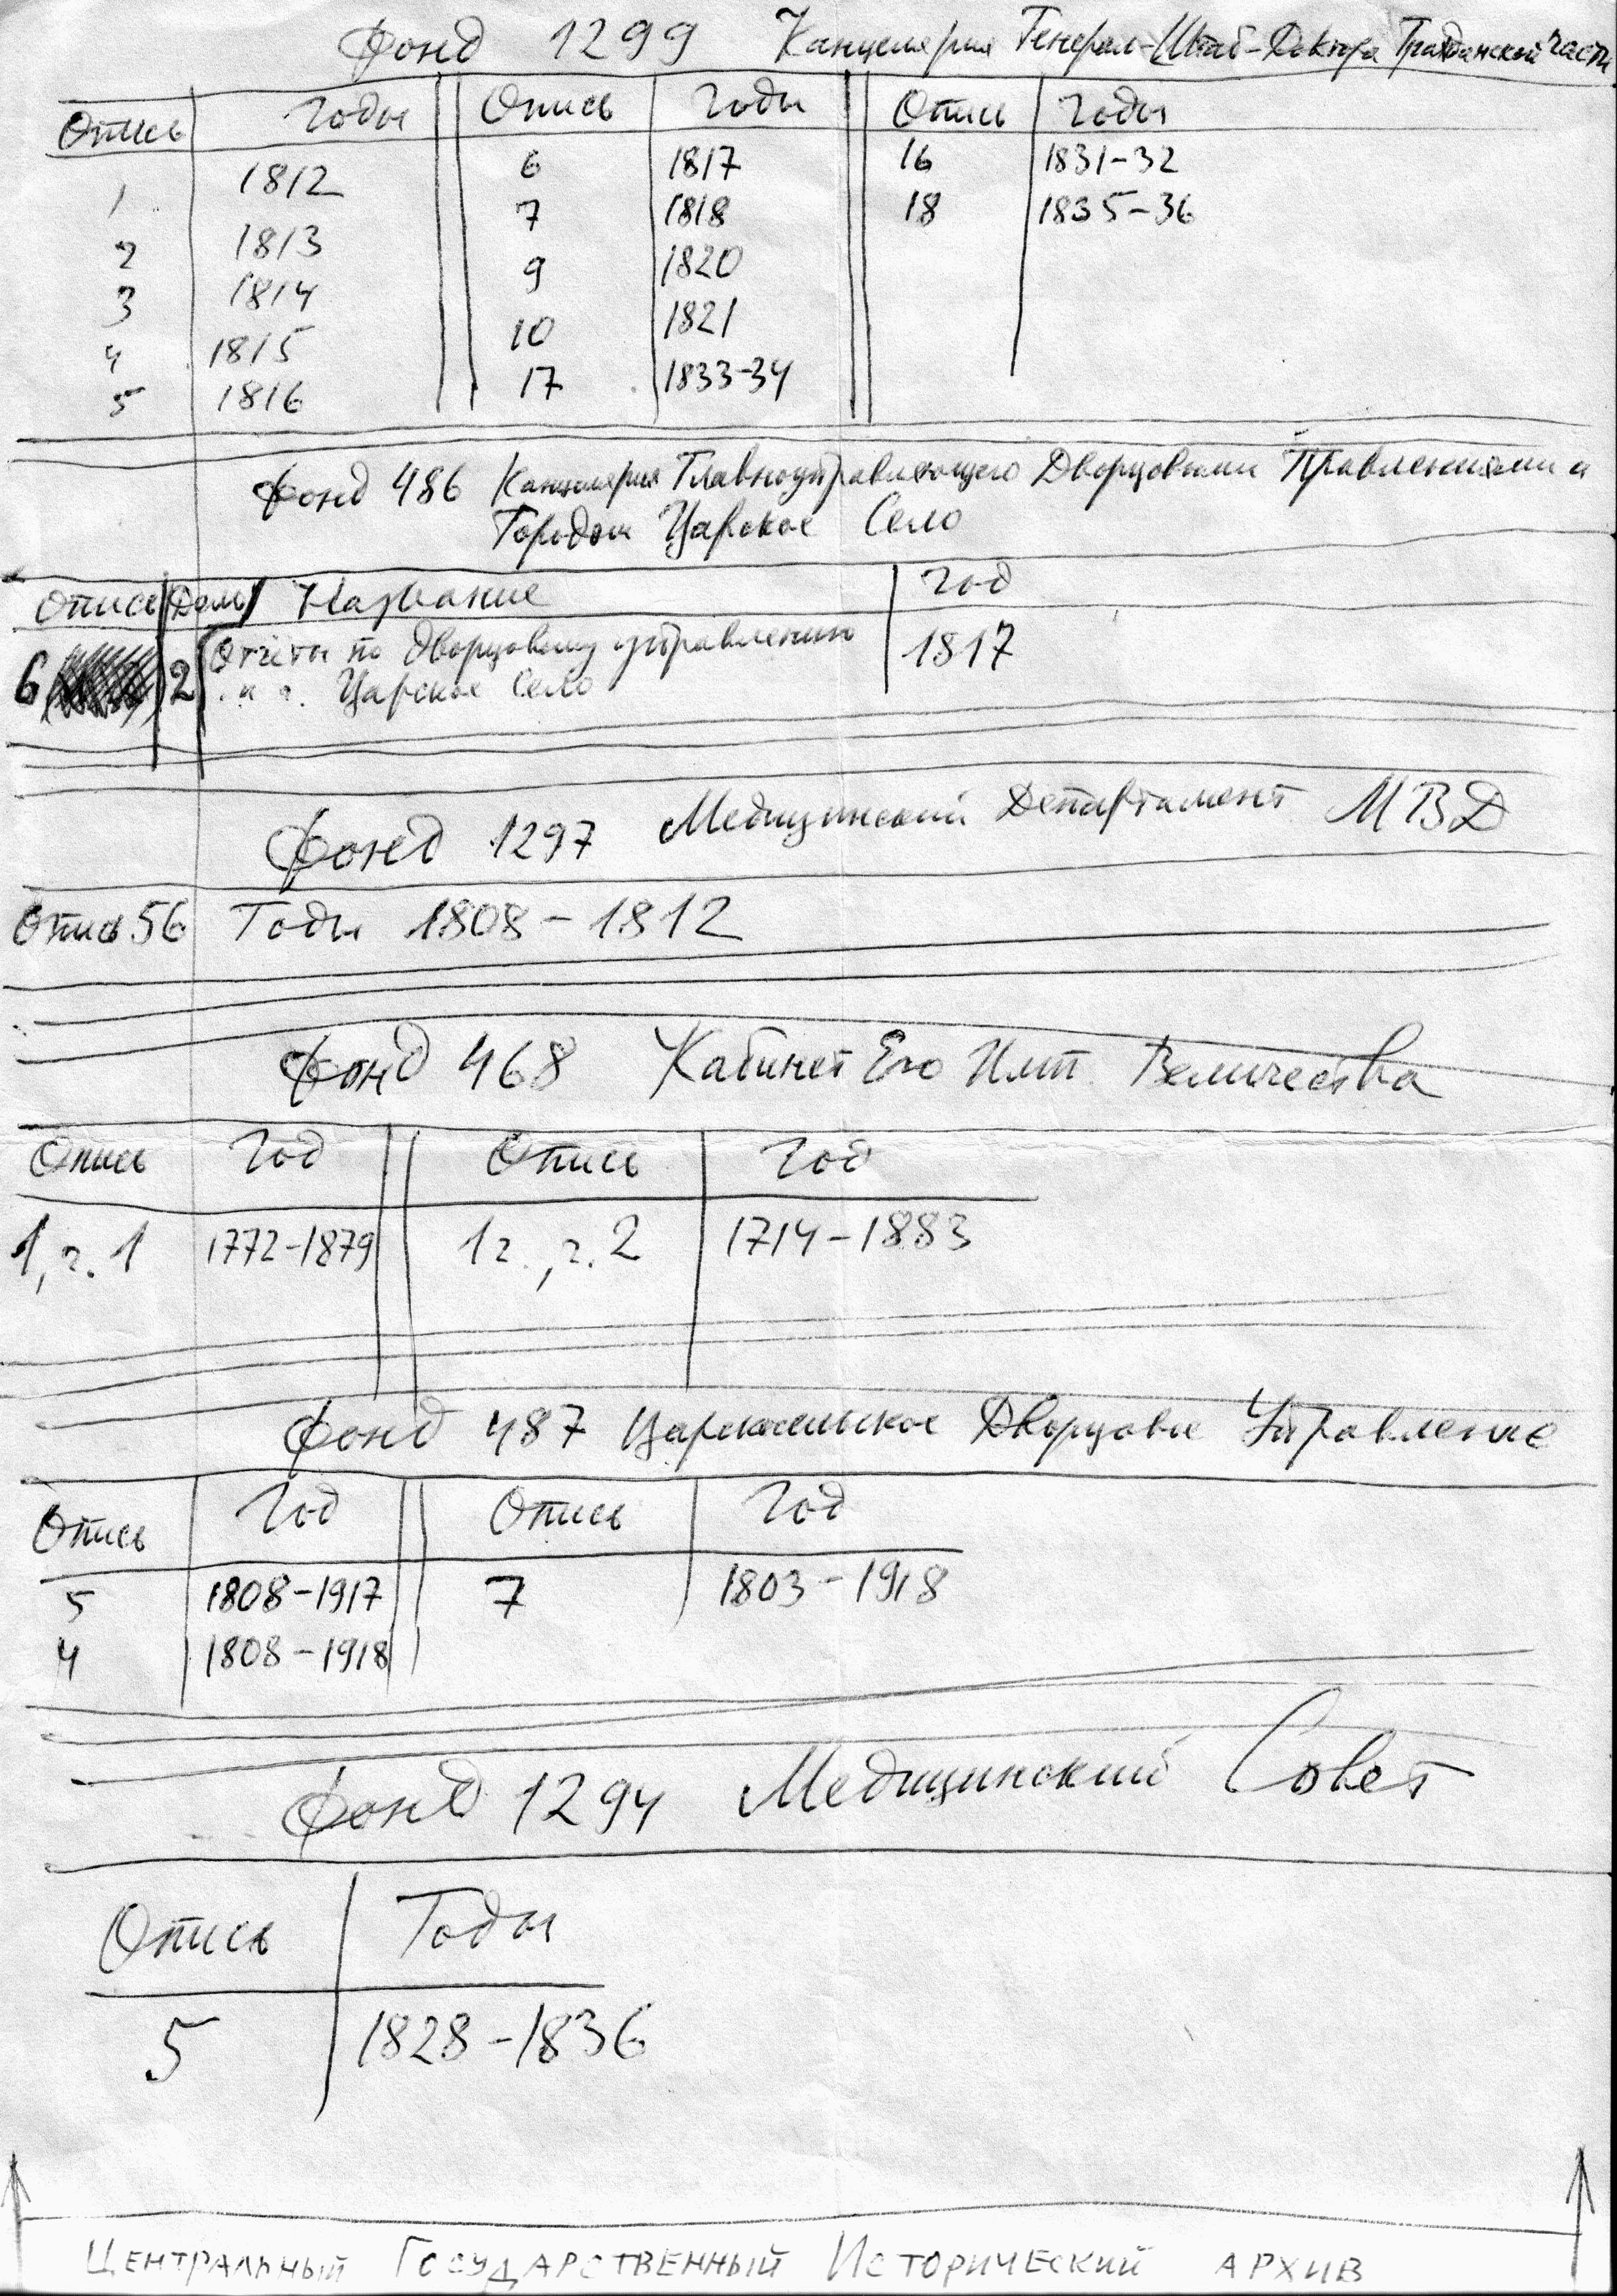 Фонд 1299 Канцелярия Генерал-Штаб-Доктора Гражданской части
Опись Годы Опись Годы Опись Годы
1 1812 6 1817 16 1831-32
2 1813 7 1818 18 1835-36
3 1814 9 1820
4 1815 10 1821
5 1816 17 1833-34
Фонд 486 Канцелярия Главноуправляющего Дворцовыми Правлениями и
Городом Царское Село
Опись Дело Название Год
6 2 Отчёты по дворцовому управлению 1817
и г. Царское Село
Фонд 1297 Медицинский Департамент МВД
Опись 56 Годы 1808-1812
Фонд 468 Кабинет Его Имп. Величества
Опись Год Опись Год
1, ч. 1 1772-1879 1 ч., ч. 2 1714-1883
Фонд 487 Царскосельское Дворцовое Управление
Опись Год Опись Год
5 1808-1917 7 1803-1918
4 1808-1918
Фонд 1294 Медицинский Совет
Опись Годы
5 1828-1836
Центральный Государственный Исторический архив